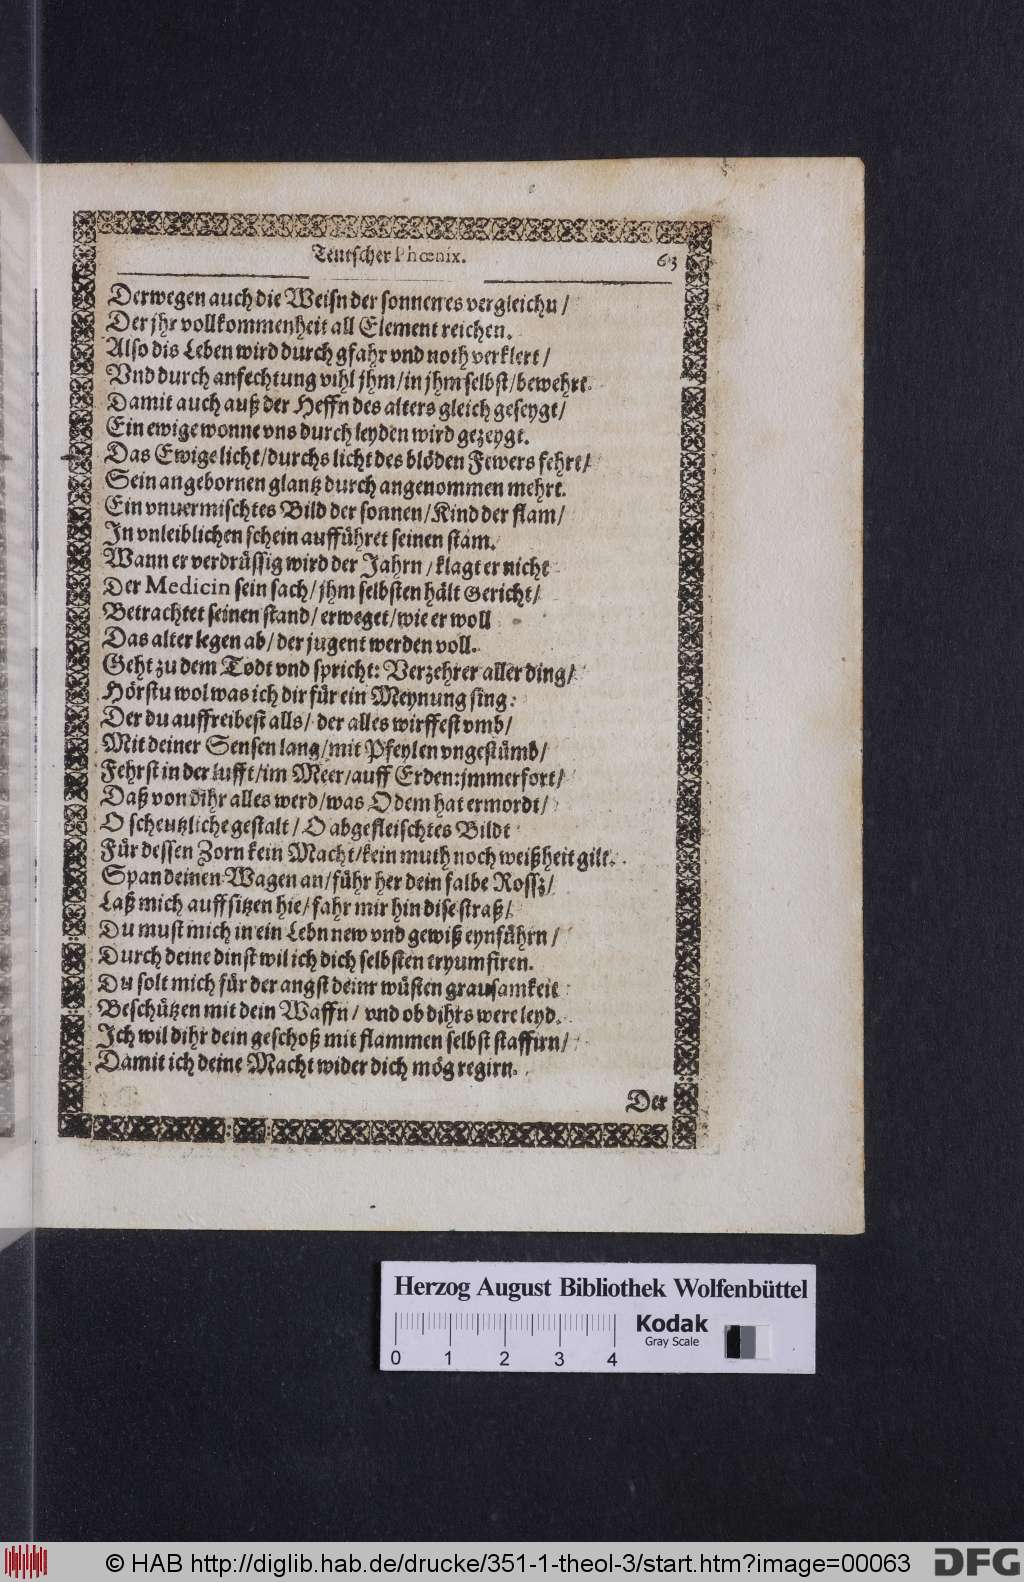 Teutscher Phœnix. 63
Derwegen auch die Weisn der sonnen es vergleichn /
Der jhr vollkommenheit all Element reichen.
Also dis Leben wird durch gfahr vnd noth verklert /
Vnd durch anfechtung vihl jhm / in jhm selbst / bewehrt.
Damit auch auß der Heffn des alters gleich geseygt /
Ein ewige wonne vns durch leyden wird gezeygt.
Das Ewige licht / durchs licht des blöden Fewers fehrt /
Sein angebornen glantz durch angenommen mehrt.
Ein vnuermischtes Bild der sonnen / Kind der flam /
In vnleiblichen schein aufführet seinen stam.
Wann er verdrüssig wird der Jahrn / klagt er nicht
Der Medicin sein sach / jhm selbsten hält Gericht /
Betrachtet seinen stand / erweget / wie er woll
Das alter legen ab / der jugent werden voll.
Geht zu dem Todt vnd spricht: Verzehrer aller ding /
Hörstu wol was ich dir für ein Meynung sing:
Der du auffreibest alls / der alles wirffest vmb /
Mit deiner Sensen lang / mit Pfeylen vngestümb /
Fehrst in der lufft / im Meer / auff Erden: jmmerfort /
Daß von dihr alles werd / was Odem hat ermordt /
O scheutzliche gestalt / O abgefleischtes Bildt
Für dessen Zorn kein Macht / kein muth noch weißheit gilt.
Span deinen Wagen an / führ her dein falbe Rossz /
Laß mich auffsitzen hie / fahr mir hin dise straß /
Du must mich in ein Lebn new vnd gewiß eynführn /
Durch deine dinst wil ich dich selbsten tryumfiren.
Du solt mich für der angst deinr wüsten grausamkeit
Beschützen mit dein Waffn / vnd ob dihrs were leyd.
Ich wil dihr dein geschoß mit flammen selbst staffirn /
Damit ich deine Macht wider dich mög regirn.
Der
Herzog August Bibliothek Wolfenbüttel
Kodak
Gray Scale
0 1 2 3 4
© HAB http://diglib.hab.de/drucke/351-1-theol-3/start.htm?image=00063
DFG